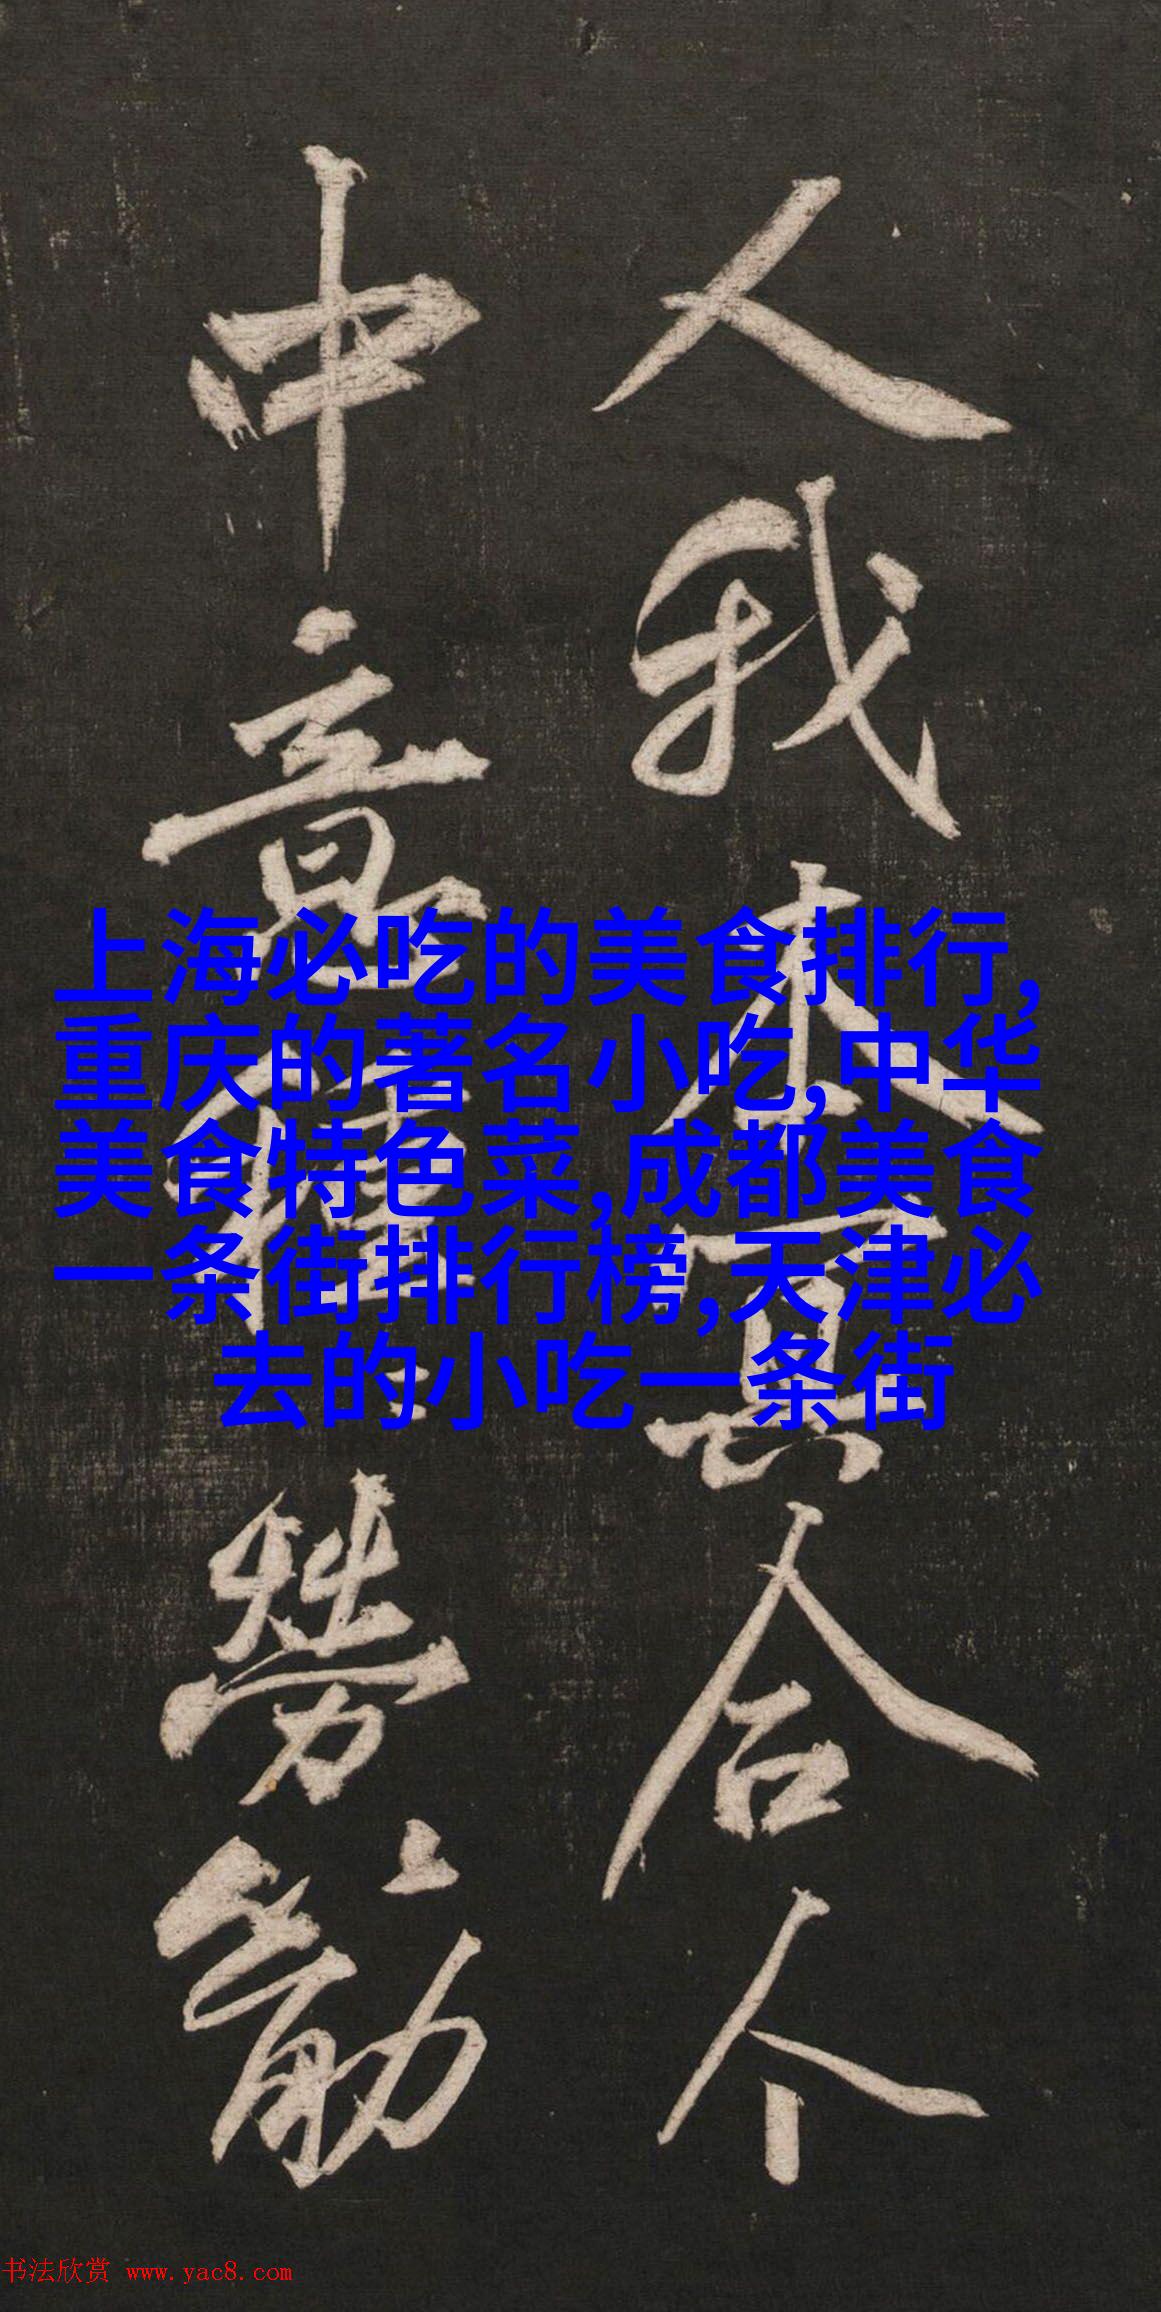 人我本冥合个
中意
劳筋
上海必吃的美食排行,
重庆的著名小吃,中华
美食特色菜,成都美食
一条街排行榜,天津必
去的小吃一条街
书法欣赏 www.yac8.com